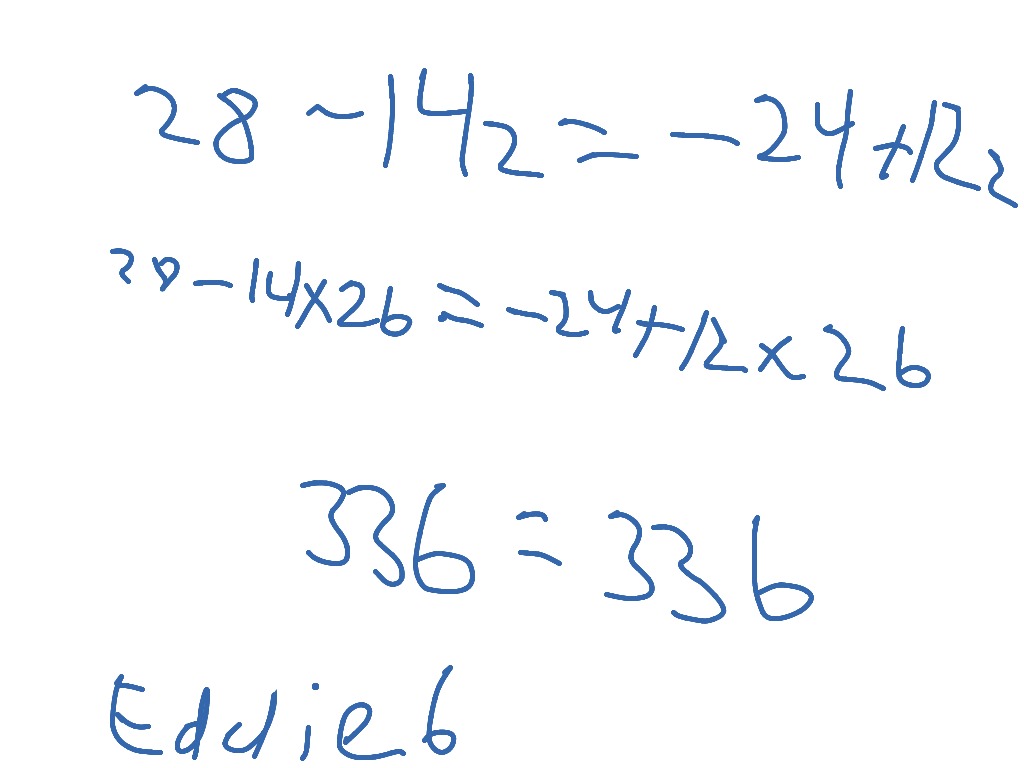 28 - 14z = -24 + 12z
28 - 14 x 26 = -24 + 12 x 26
336 = 336
Eddie 6